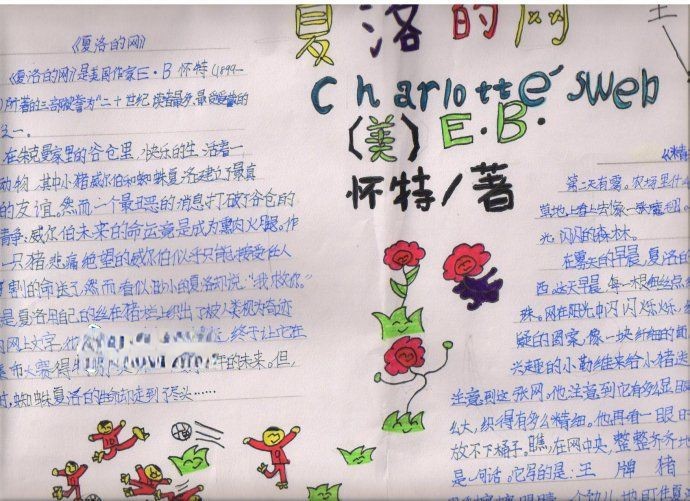 《夏洛的网》
《夏洛的网》是美国作家E·B怀特(1899—
)所著的三部被誉为"二十世纪读者最多、最受爱戴的
之一。
在朱克曼家里的谷仓里,快乐的生活着一
动物,其中小猪威尔伯和蜘蛛夏洛建立了最真
的友谊。然而一个最丑恶的消息打破了谷仓的
静:威尔伯未来的命运竟是成为熏肉火腿。作
一只猪,悲痛绝望的威尔伯似乎只能接受任人
宰割的命运了,然而看似渺小的夏洛却说:"我救你。"
是夏洛用自己的丝在猪栏上织出了被人类视为奇迹
网上文字,
终于让它在
年的未来。但,
时,蜘蛛夏洛的生命却走到了尽头……
夏洛的网
Charlotte'sweb
(美)E.B.
怀特/著
王
《精
第二天有雾。农场里什
草地上看上去像一张魔毯。
光闪闪的森林。
在雾天的早晨,夏洛的
西。这天早晨,每一根细丝点
珠。网在阳光中闪闪烁烁,
疑的图案,像一块纤细的面
兴趣的小勒维来给小猪送
注意到这张网。他注意到它有多么显眼
么大,织得有多么精细。他再看一眼时
放不下桶子。瞧,在网中央,整整齐齐地
是一句话。它写的是:王牌猪